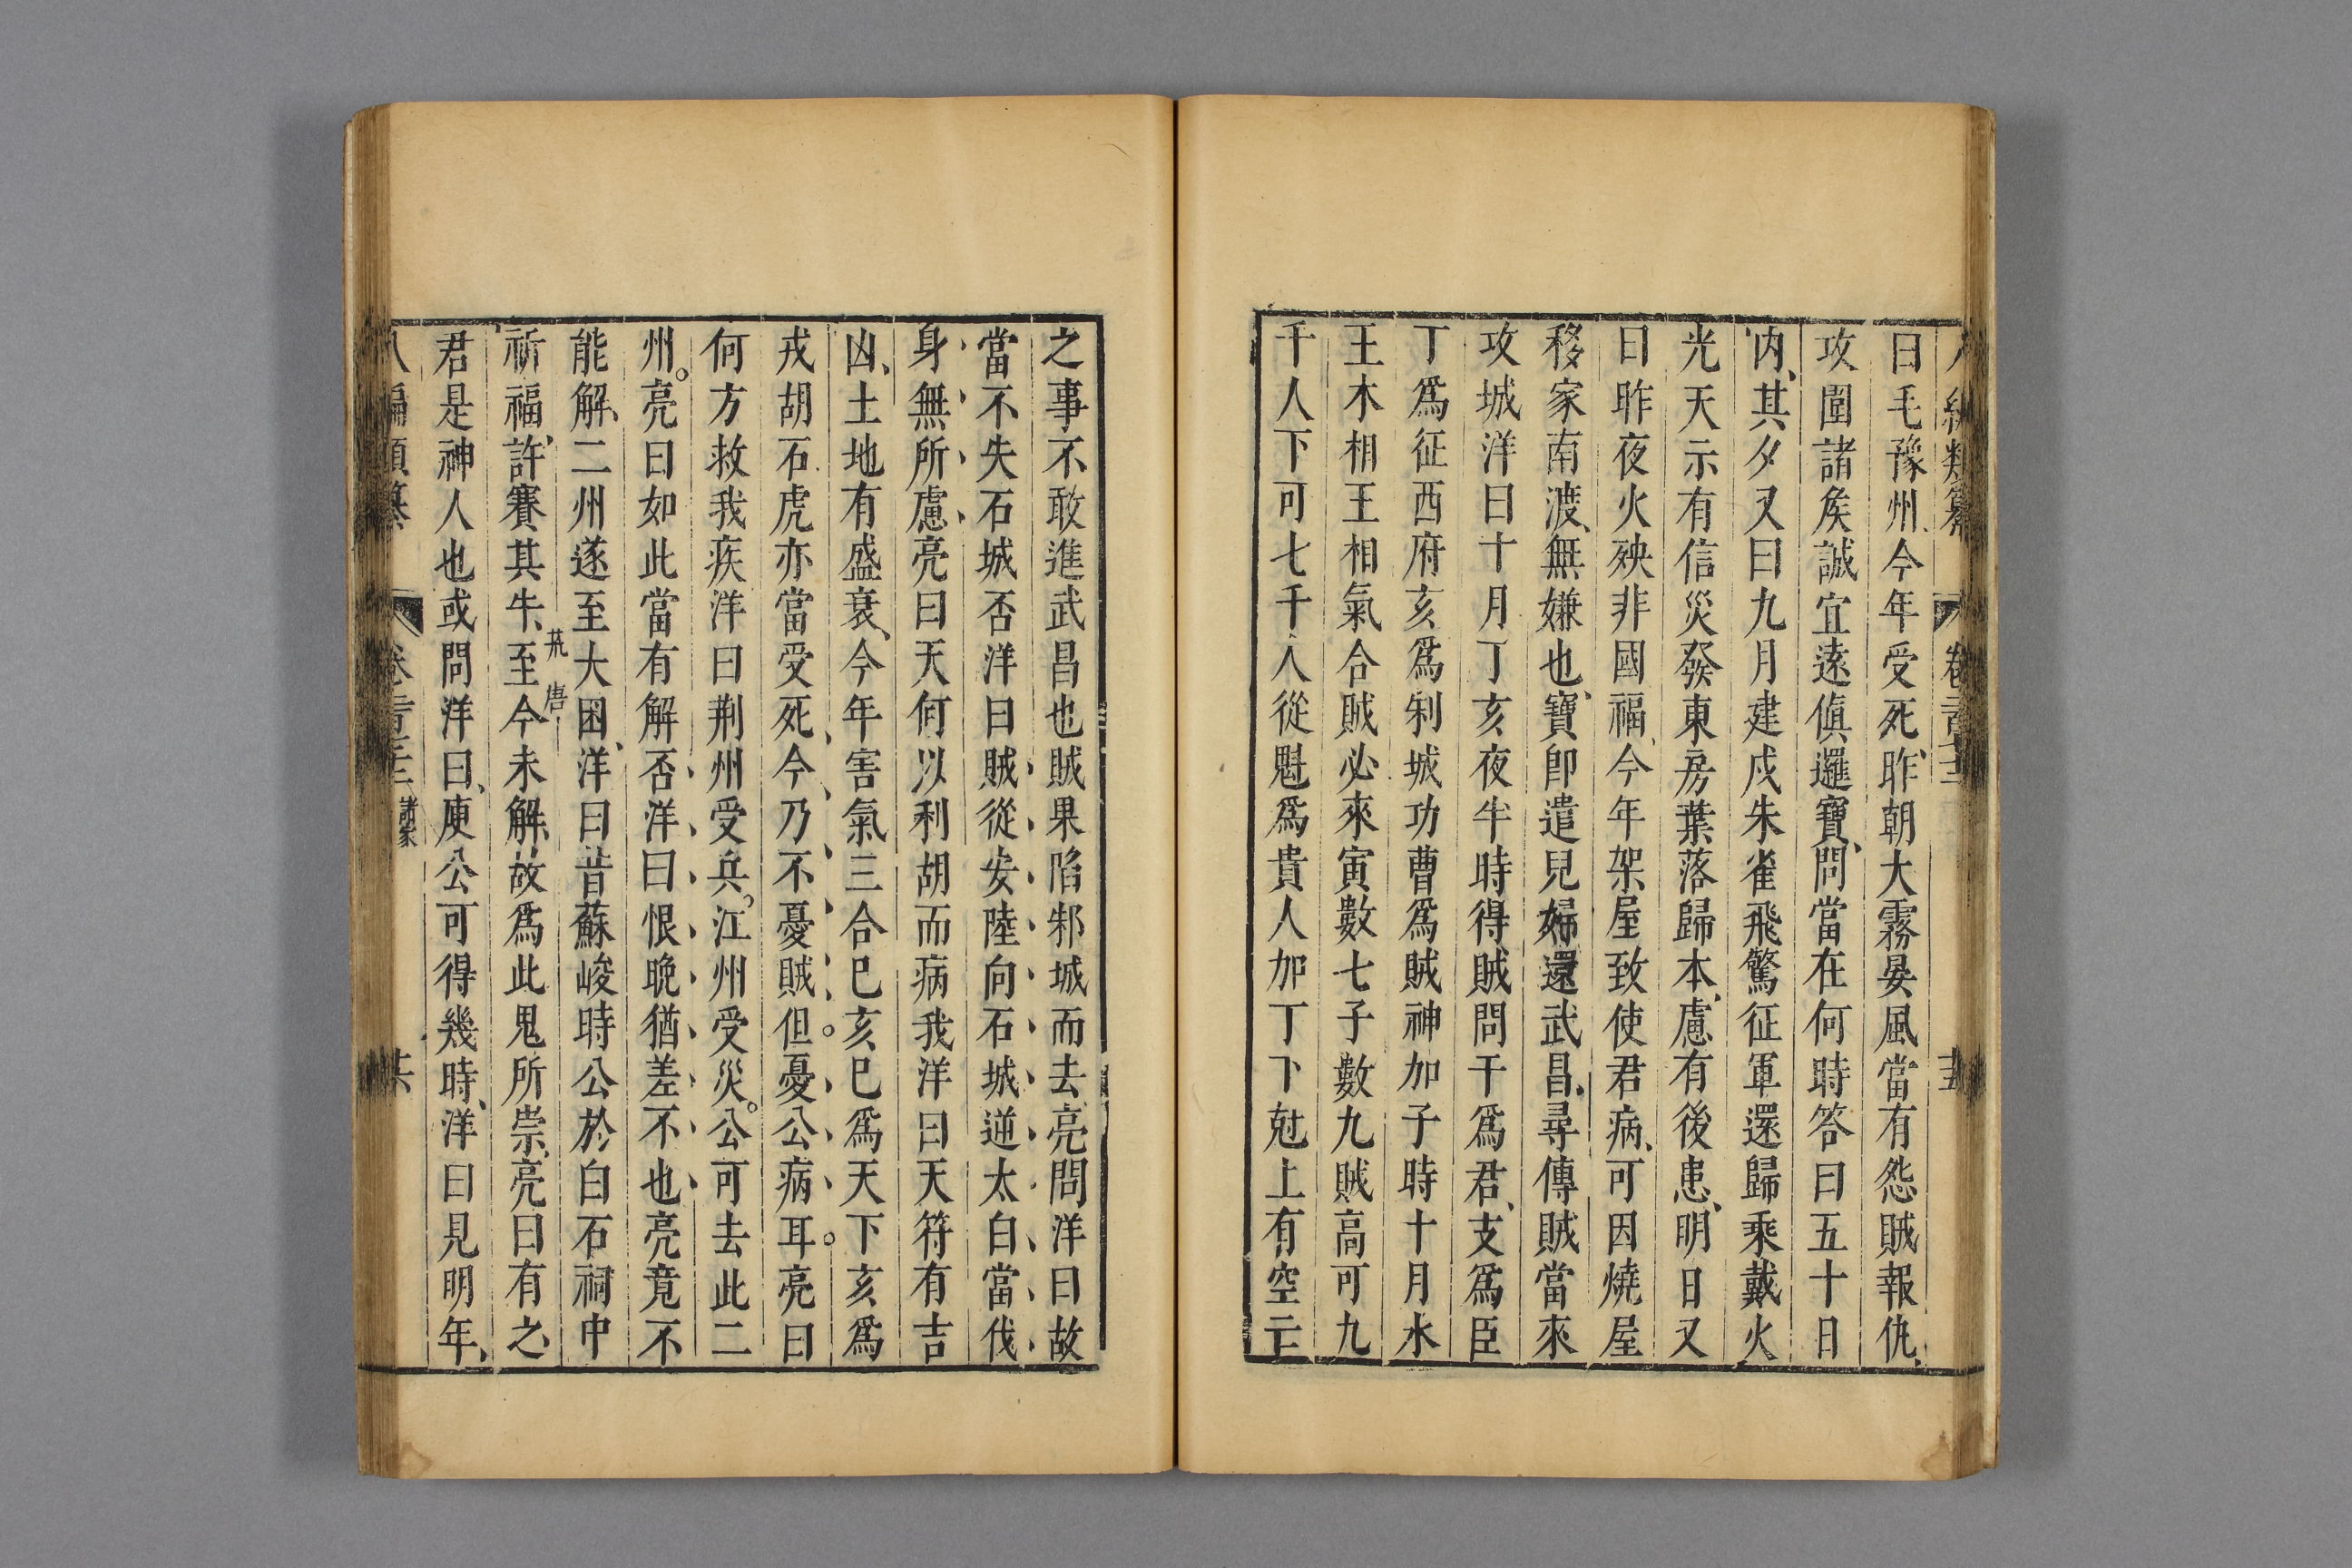 八編類纂 卷
曰毛豫州今年受死昨朝大霧晏風當有怨賊報仇
攻圍諸矦誠宜遠偵邏寶問當在何時答曰五十日
内其夕又曰九月建戍朱雀飛驚征軍還歸乘戴火
光天示有信災發東房葉落歸本慮有後患明日又
曰昨夜火殃非國福今年架屋致使君病可因燒屋
移家南渡無嫌也寶卽遣兒婦還武昌尋傳賊當來
攻城洋曰十月丁亥夜半時得賊問干爲君支爲臣
丁爲征西府亥爲邾城功曹爲賊神加子時十月水
王木相王相氣合賊必來寅數七子數九賊高可九
千人下可七千人從魁爲貴人加丁下尅上有空亡
之事不敢進武昌也賊果陷邾城而去亮問洋曰故
當不失石城否洋曰賊從安陸向石城逆太白當伐
身無所慮亮曰天何以利胡而病我洋曰天符有吉
凶土地有盛衰今年害氣三合巳亥巳爲天下亥爲
戎胡石虎亦當受死今乃不憂賊但憂公病耳亮曰
何方救我疾洋曰荆州受兵江州受災公可去此二
州亮曰如此當有解否洋曰恨晩猶差不也亮竟不
能解二州遂至大困洋曰昔蘇峻時公於白石祠中
祈福許賽其牛至今未解故爲此鬼所祟亮曰有之
君是神人也或問洋曰庾公可得幾時洋曰見明年
八編類纂 卷 諸家